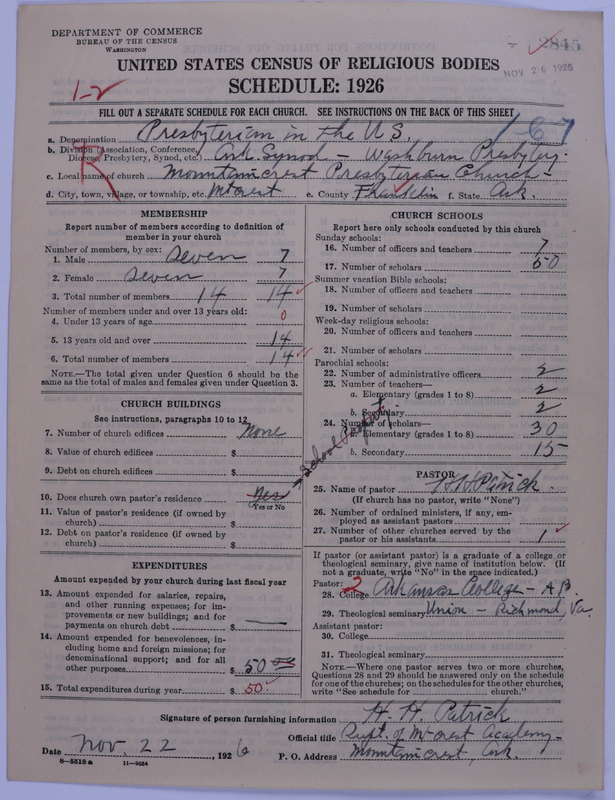 DEPARTMENT OF COMMERCE
BUREAU OF THE CENSUS
WASHINGTON
2845
NOV 26 1926
UNITED STATES CENSUS OF RELIGIOUS BODIES
SCHEDULE: 1926
1-2
FILL OUT A SEPARATE SCHEDULE FOR EACH CHURCH. SEE INSTRUCTIONS ON THE BACK OF THIS SHEET
R
167
a. Denomination Presbyterian in the U.S.
b. Division (Association, Conference, Diocese, Presbytery, Synod, etc.) Ark Synod - Washburn Presbytery.
c. Local name of church Mountaincrest Presbyterian Church -
d. City, town, village, or township, etc. Mtcrest e. County Franklin f. State Ark.
MEMBERSHIP
Report number of members according to definition of
member in your church
Number of members, by sex:
1. Male Seven 7
2. Female Seven 7
3. Total number of members 14 14
Number of members under and over 13 years old:
4. Under 13 years of age 0
5. 13 years old and over 14
6. Total number of members 14
NOTE.—The total given under Question 6 should be the
same as the total of males and females given under Question 3.
CHURCH BUILDINGS
See instructions, paragraphs 10 to 12
7. Number of church edifices None
8. Value of church edifices $
9. Debt on church edifices $
School property
10. Does church own pastor's residence Yes
Yes or No
11. Value of pastor's residence (if owned by
church) $
12. Debt on pastor's residence (if owned by
church) $
EXPENDITURES
Amount expended by your church during last fiscal year
13. Amount expended for salaries, repairs,
and other running expenses; for im-
provements or new buildings; and for
payments on church debt $
14. Amount expended for benevolences, in-
cluding home and foreign missions; for
denominational support; and for all
other purposes $ 50 00
15. Total expenditures during year $ 50
CHURCH SCHOOLS
Report here only schools conducted by this church
Sunday schools:
16. Number of officers and teachers 7
17. Number of scholars 50
Summer vacation Bible schools:
18. Number of officers and teachers
19. Number of scholars
Week-day religious schools:
20. Number of officers and teachers
21. Number of scholars
Parochial schools:
22. Number of administrative officers 2
23. Number of teachers—
a. Elementary (grades 1 to 8) 2
b. Secondary 2
24. Number of scholars—
a. Elementary (grades 1 to 8) 30
b. Secondary 15
PASTOR
25. Name of pastor H H Patrick.
(If church has no pastor, write "None")
26. Number of ordained ministers, if any, em-
ployed as assistant pastors
27. Number of other churches served by the
pastor or his assistants 1
If pastor (or assistant pastor) is a graduate of a college or
theological seminary, give name of institution below. (If
not a graduate, write "No" in the space indicated.)
Pastor: 2
28. College Arkansas College - A B
29. Theological seminary Union - Richmond, Va.
Assistant pastor:
30. College
31. Theological seminary
NOTE.—Where one pastor serves two or more churches,
Questions 28 and 29 should be answered only on the schedule
for one of the churches; on the schedules for the other churches,
write "See schedule for ________ church."
Signature of person furnishing information H. H. Patrick
Official title Supt. of Mt-crest Academy-
Date Nov. 22, 1926 P. O. Address Mountaincrest, Ark.
8—5518 a 11—9034